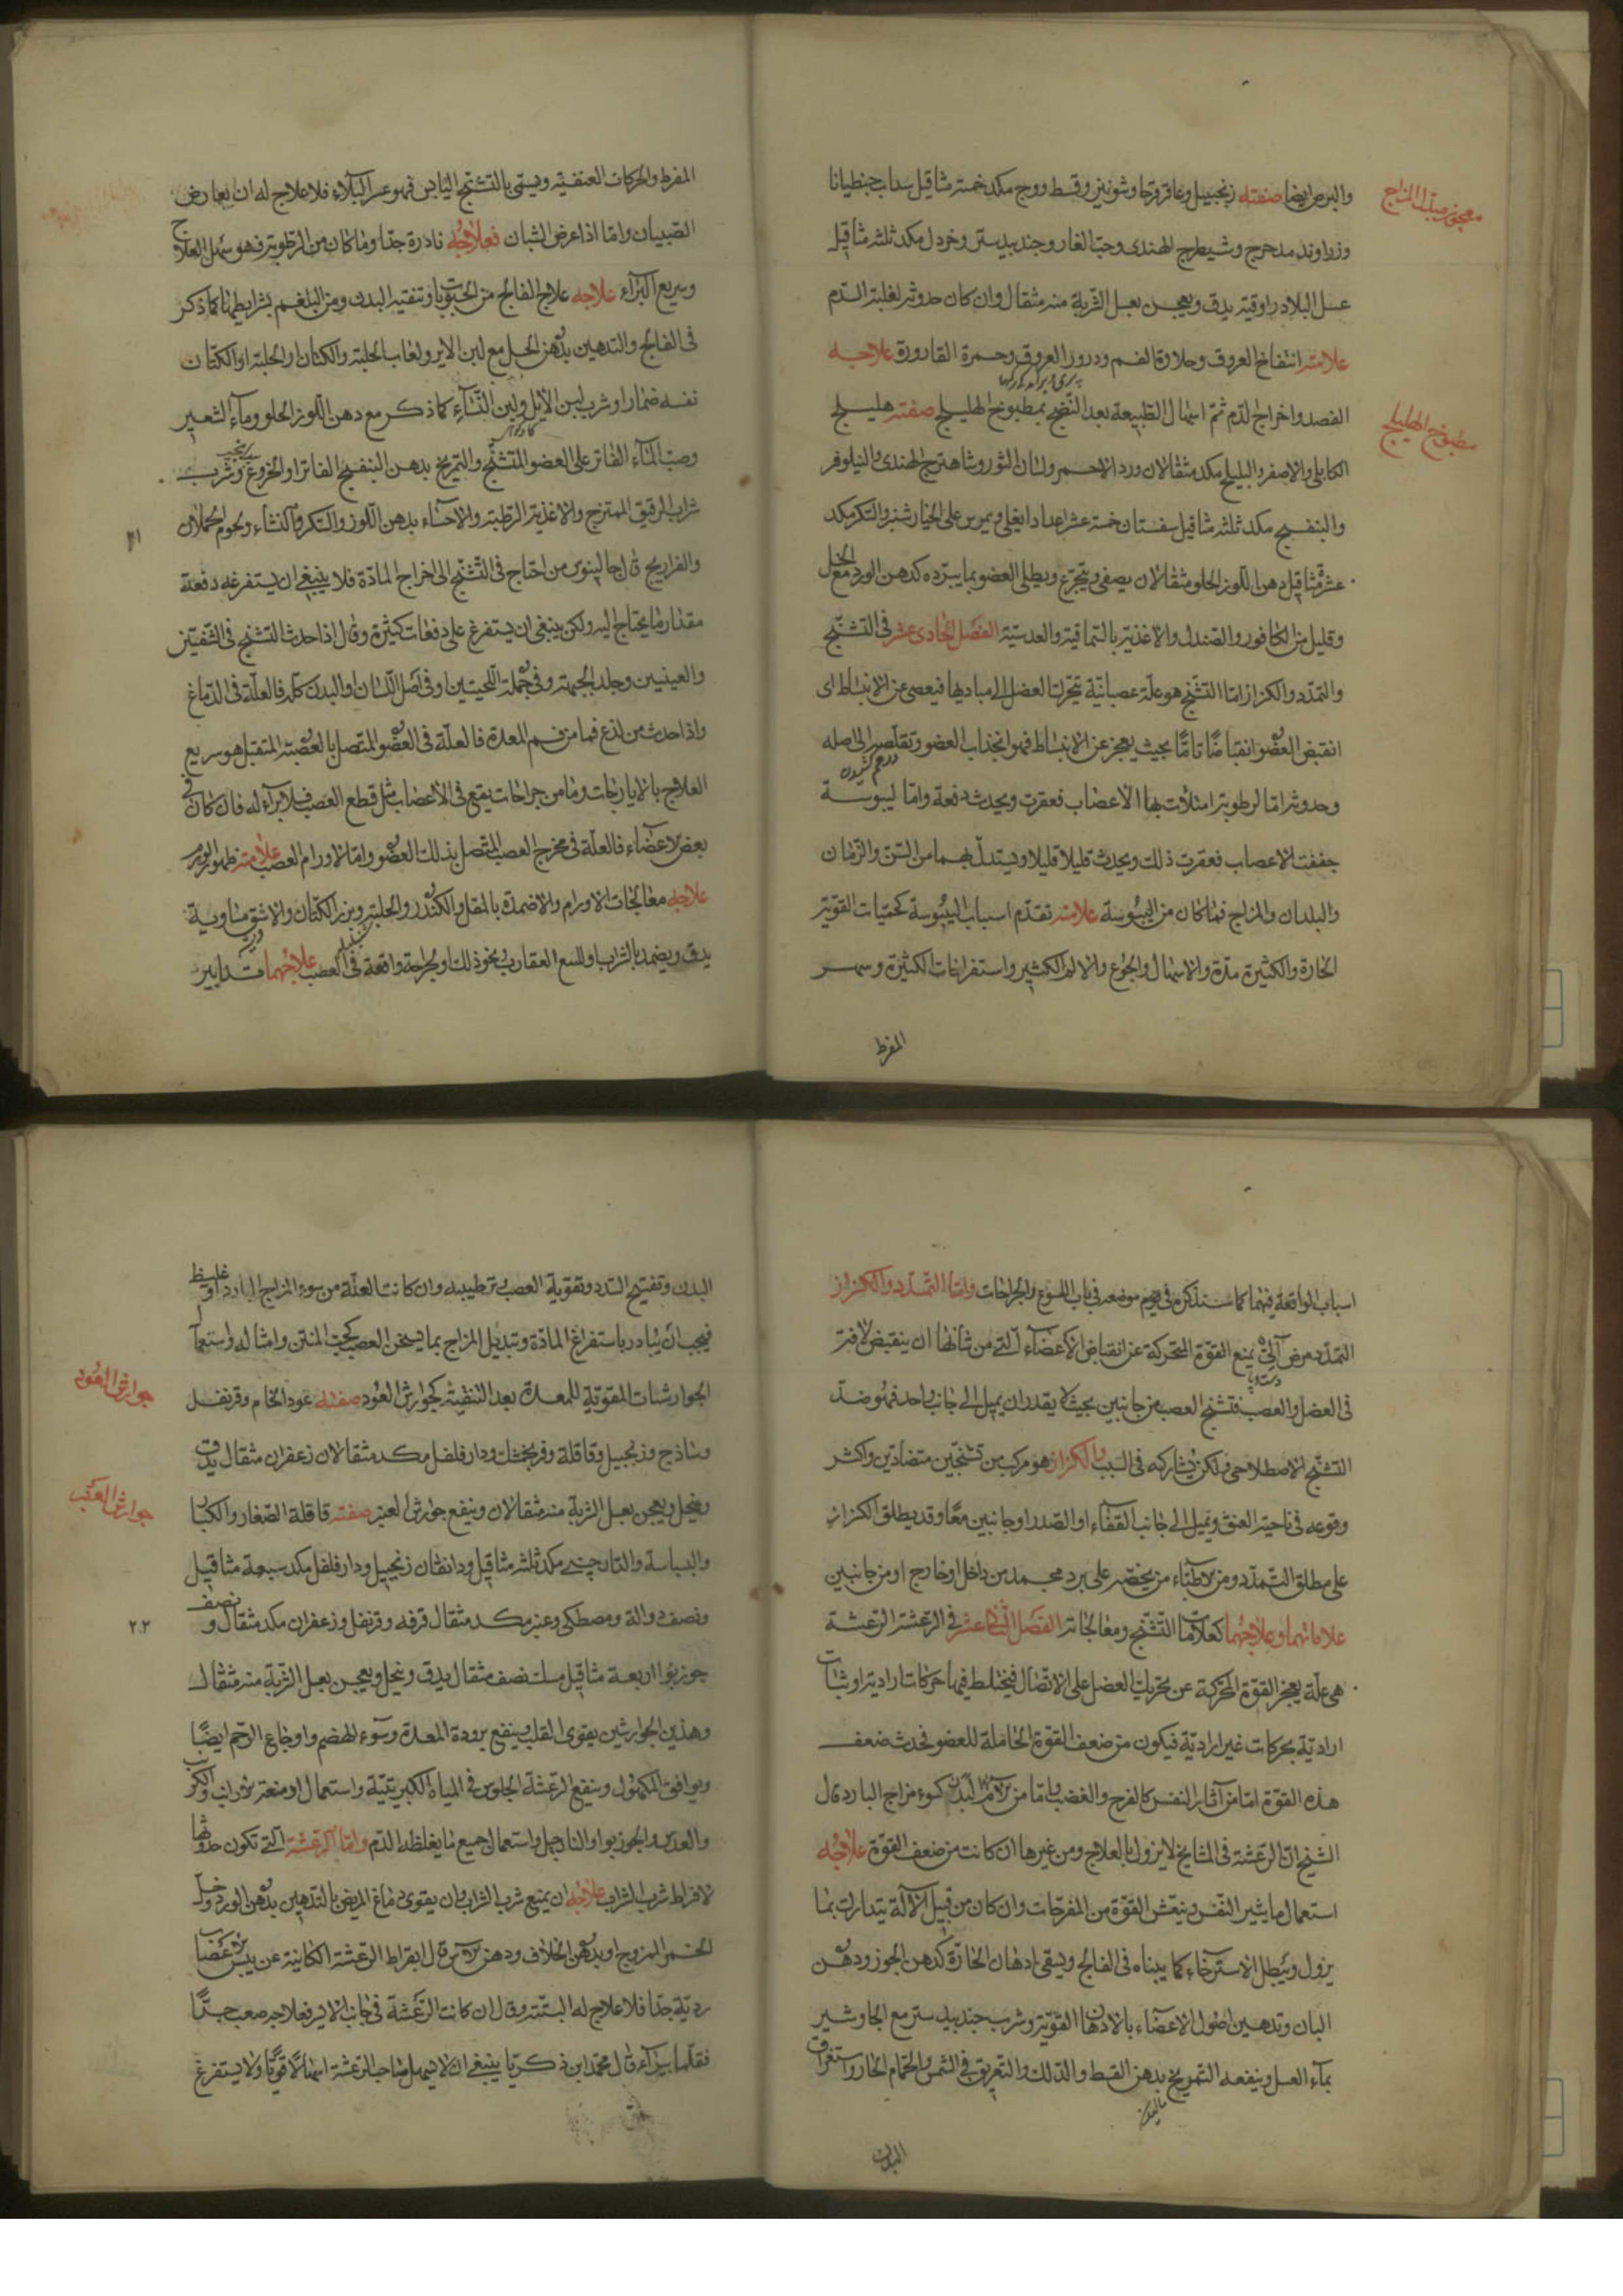 والبرص ايضا صفته زنجبيل وعاقرقرحا وشونيز وقسط ووج مكد خمسة مثاقيل سداب جنطيانا
معجون مبدل المزاج
وزراوند مدحرج وشيطرج الهندى وحب الغار وجندبيدستر وخردل مكد ثلثه مثاقيل
عسل البلادر اوقيه يدق ويعجن بعسل الشربة منه مثقال وان كان حدوثه لغلبة الدم
علامته انتفاخ العروق وحلاوة الفم ودرور العروق وحمرة القارورة علاجه
الفصد واخراج الدم ثم اسهال الطبيعة بعد النضج بمطبوخ الهليلج صفته هليلج
مطبوخ الهليلج
الكابلى والاصفر والبليلج مكد مثقالان ورد الاحمر ولسان الثور وشاهترج الهندى والنيلوفر
والبنفسج مكد ثلثه مثاقيل سفستان خمسة عشر اعدادا يغلى ويمرس على الخيارشنبر والسكر مكد
عشرة مثاقيل دهن اللوز الحلو مثقالان يصفى ويتجرع ويطلى العضو بما يبرده كدهن الورد مع الخل
وقليل من الكافور والصندل والاغذية بالسماقية والعدسية الفصل الحادى عشر فى التشنج
والتمدد والكزاز اما التشنج هو علة عصبانية يتحرك العضل الى مباديها فيعصى عن الانبساط اى
انقبض العضو انقباضًا تامًّا بحيث يعجز عن الانبساط فهو انجذاب العضو وتقلصه الى اصله
وحدوثه اما لرطوبة امتلأت بها الاعصاب فعقرت ويحدث دفعة واما ليبوسة
جففت الاعصاب فعقرت ذلك ويحدث قليلا قليلا ويستدل بهما من السن والزمان
والبلدان والمزاج فما كان من اليبوسة علامته تقدم اسباب اليبوسة كحميات القوية
الحارة والكثيرة مدة والاسهال والجوع والالم الكثير واستفراغات الكثيرة وسهر
المفرط
المفرط والحركات العنفية ويسمى بالتشنج اليابس فهو عسر البلاء فلا علاج له ان يعارض
الصبيان واما اذا عرض الشبان فعلاجه نادرة جدا وما كان من الرطوبة فهو سهل العلاج
وسريع البراء علاجه علاج الفالج من الحبوبات وتنقية البدن ومن البلغم بشرايطها كما ذكر
فى الفالج والتدهين بدهن الحل مع لبن الاير ولعاب الحلبة والكتان او الحلبة او الكتان
نفسه ضمادا وشرب لبن الايل ولبن النساء كما ذكر مع دهن اللوز الحلو وماء الشعير
وصب الماء الفاتر على العضو المتشنج والتمريخ بدهن البنفسج الفاتر او الخروع وشرب
شراب الرقيق الممتزج والاغذية الرطبة والاحساء بدهن اللوز والسكر والنشاء ولحوم الحملان
والفراريج قال جالينوس من احتاج فى التشنج الى اخراج المادة فلا ينبغى ان يستفرغه دفعة
مقدار ما يحتاج اليه ولكن ينبغى ان يستفرغ على دفعات كثيرة وقال اذا حدث التشنج فى الشفتين
والعينين وجلد الجبهة وفى جملة اللحيين او فى اصل اللسان او البدن كله فالعلة فى الدماغ
واذا حدث من لذع فما من فم المعدة فالعلة فى العضو المتصل بالعصبة المتقبل هو سريع
العلاج بالايارجات وما من جراحات يقع فى الاعصاب مثل قطع العصب فلا براء له فان كان فى
بعض الاعضاء فالعلة فى مخرج العصب المتصل بذلك العضو واما الاورام العصب علامته ظهور الورم
علاجه معالجات الاورام والاضمدة بالمقل والكندر والحلبة وبزر الكتان والاشق متساوية
يدق ويضمد بالشراب وللسع العقارب ونحو ذلك او جراحة واقعة فى العصب علاجهما تدابير
اسباب الواقعة فيهما كما سنذكره فى موضعه فى باب اللسوع والجراحات واما التمدد والكزاز
التمدد مرض آلى يمنع القوة المتحركة عن انقباض الاعضاء التى من شانها ان ينقبض لافة
فى العضل والعصب فتشنج العصب من جانبين بحيث لا يقدر ان يميل الى جانب واحد فهو ضد
التشنج الاصطلاحى ولكن يشاركه فى السبب والكزاز هو مركب من تشنجين متضادين واكثر
وقوعه فى ناحية العنق ويميل الى جانب القفاء او الصدر او جانبين معًا وقد يطلق الكزاز
على مطلق التمدد ومن الاطباء من يخصه على برد مجمد من داخل او خارج او من جانبين
علاماتهما وعلاجهما كعلامات التشنج ومعالجاته الفصل الثانى عشر فى الرعشة الرعشة
هى علة يعجز القوة المحركة عن تحريك العضل على الاتصال فيختلط فيها حركات ارادية او ثبات
ارادية بحركات غير ارادية فيكون من ضعف القوة الحاملة للعضو فحدث ضعف
هذه القوة اما من آثار النفس كالفرح والغضب واما من آلام البدن كسوء مزاج البارد قال
الشيخ ان الرعشة فى المشايخ لا يزول بالعلاج ومن غيرها ان كانت من ضعف القوة علاجه
استعمال ما يثير النفس وينعش القوة من المفرحات وان كان من قبيل الآلة يتدارك بما
يزول ويبطل الاسترخاء كما بيناه فى الفالج ويسقى ادهان الحارة كدهن الجوز ودهن
البان وتدهين اصول الاعضاء بالادهان القوية وشرب جندبيدستر مع الجاوشير
بماء العسل وينفعه التمريخ بدهن القسط والدلك والتعريق فى الشمس والحمام الحار واستفراغ
البدن
البدن وتفتيح السدد وتقوية العصب وترطيبه وان كانت العلة من سوء المزاج البارد او غليظ
فيجب ان يبادر باستفراغ المادة وتبديل المزاج بما يسخن العصب كحب المنتن وامثاله واستعمال
الجوارشات المقوية للمعدة بعد التنقية كجوارش العود صفته عود الخام وقرنفل
جوارش العود
وساذج وزنجبيل وقاقلة وفرنجمشك ودارفلفل مكد مثقالان زعفران مثقال يدق
وينخل ويعجن بعسل الشربة منه مثقالان وينفع جوارش العنبر صفته قاقلة الصغار والكبار
جوارش العنبر
والبسباسة والدارچينى مكد ثلثه مثاقيل ودانقان زنجبيل ودارفلفل مكد سبعة مثاقيل
ونصف دوالة ومصطكى وعنبر مكد مثقال قرفه وقرنفل وزعفران مكد مثقال ونصف
٢٢
جوزبوا اربعة مثاقيل مسك نصف مثقال يدق وينخل ويعجن بعسل الشربة منه مثقال
وهذين الجوارشين يقوى القلب وينفع برودة المعدة وسوء الهضم واوجاع الرحم ايضًا
ويوافق المكهول وينفع الرعشة الجلوس فى المياه الكبريتية واستعمال ادمغة الارانب والكرنب
والعدس والجوزبوا والنارجيل واستعمال جميع ما يغلظ الدم واما الرعشة التى تكون حدوثها
لافراط شرب الشراب علاجه ان يمنع شرب الشراب وان يقوى دماغ المريض بالتدهين بدهن الورد وخل
الخمر الممزوج او بدهن الخلاف ودهن الآس قال بقراط الرعشة الكاينة عن يبس الاعصاب
ردية جدا فلا علاج له البتة وقال ان كانت الرعشة فى جانب الايسر فعلاجه صعب جدًّا
فقلما يبراء قال محمد ابن ذكريا ينبغى ان لا يسهل صاحب الرعشة اسهالا قويًّا ولا يستفرغ